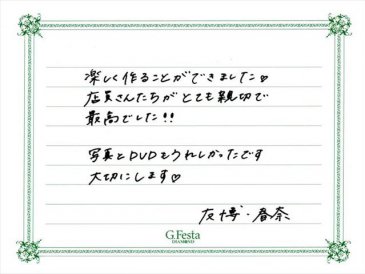 楽しく作ることができました♡
店員さんたちがとても親切で
最高でした!!
写真とDVDもうれしかったです
大切にします♡
友博・春奈
G.Festa
DIAMOND